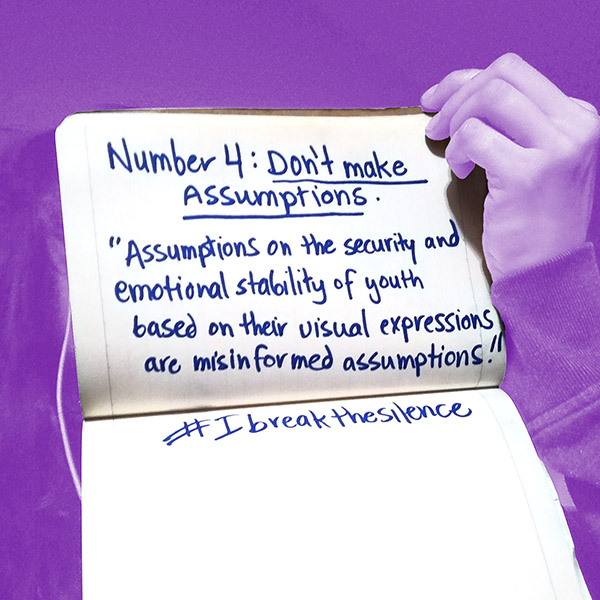 Number 4: Don't make
Assumptions.
"Assumptions on the security and
emotional stability of youth
based on their visual expressions
are misinformed assumptions!"
#Ibreakthesilence